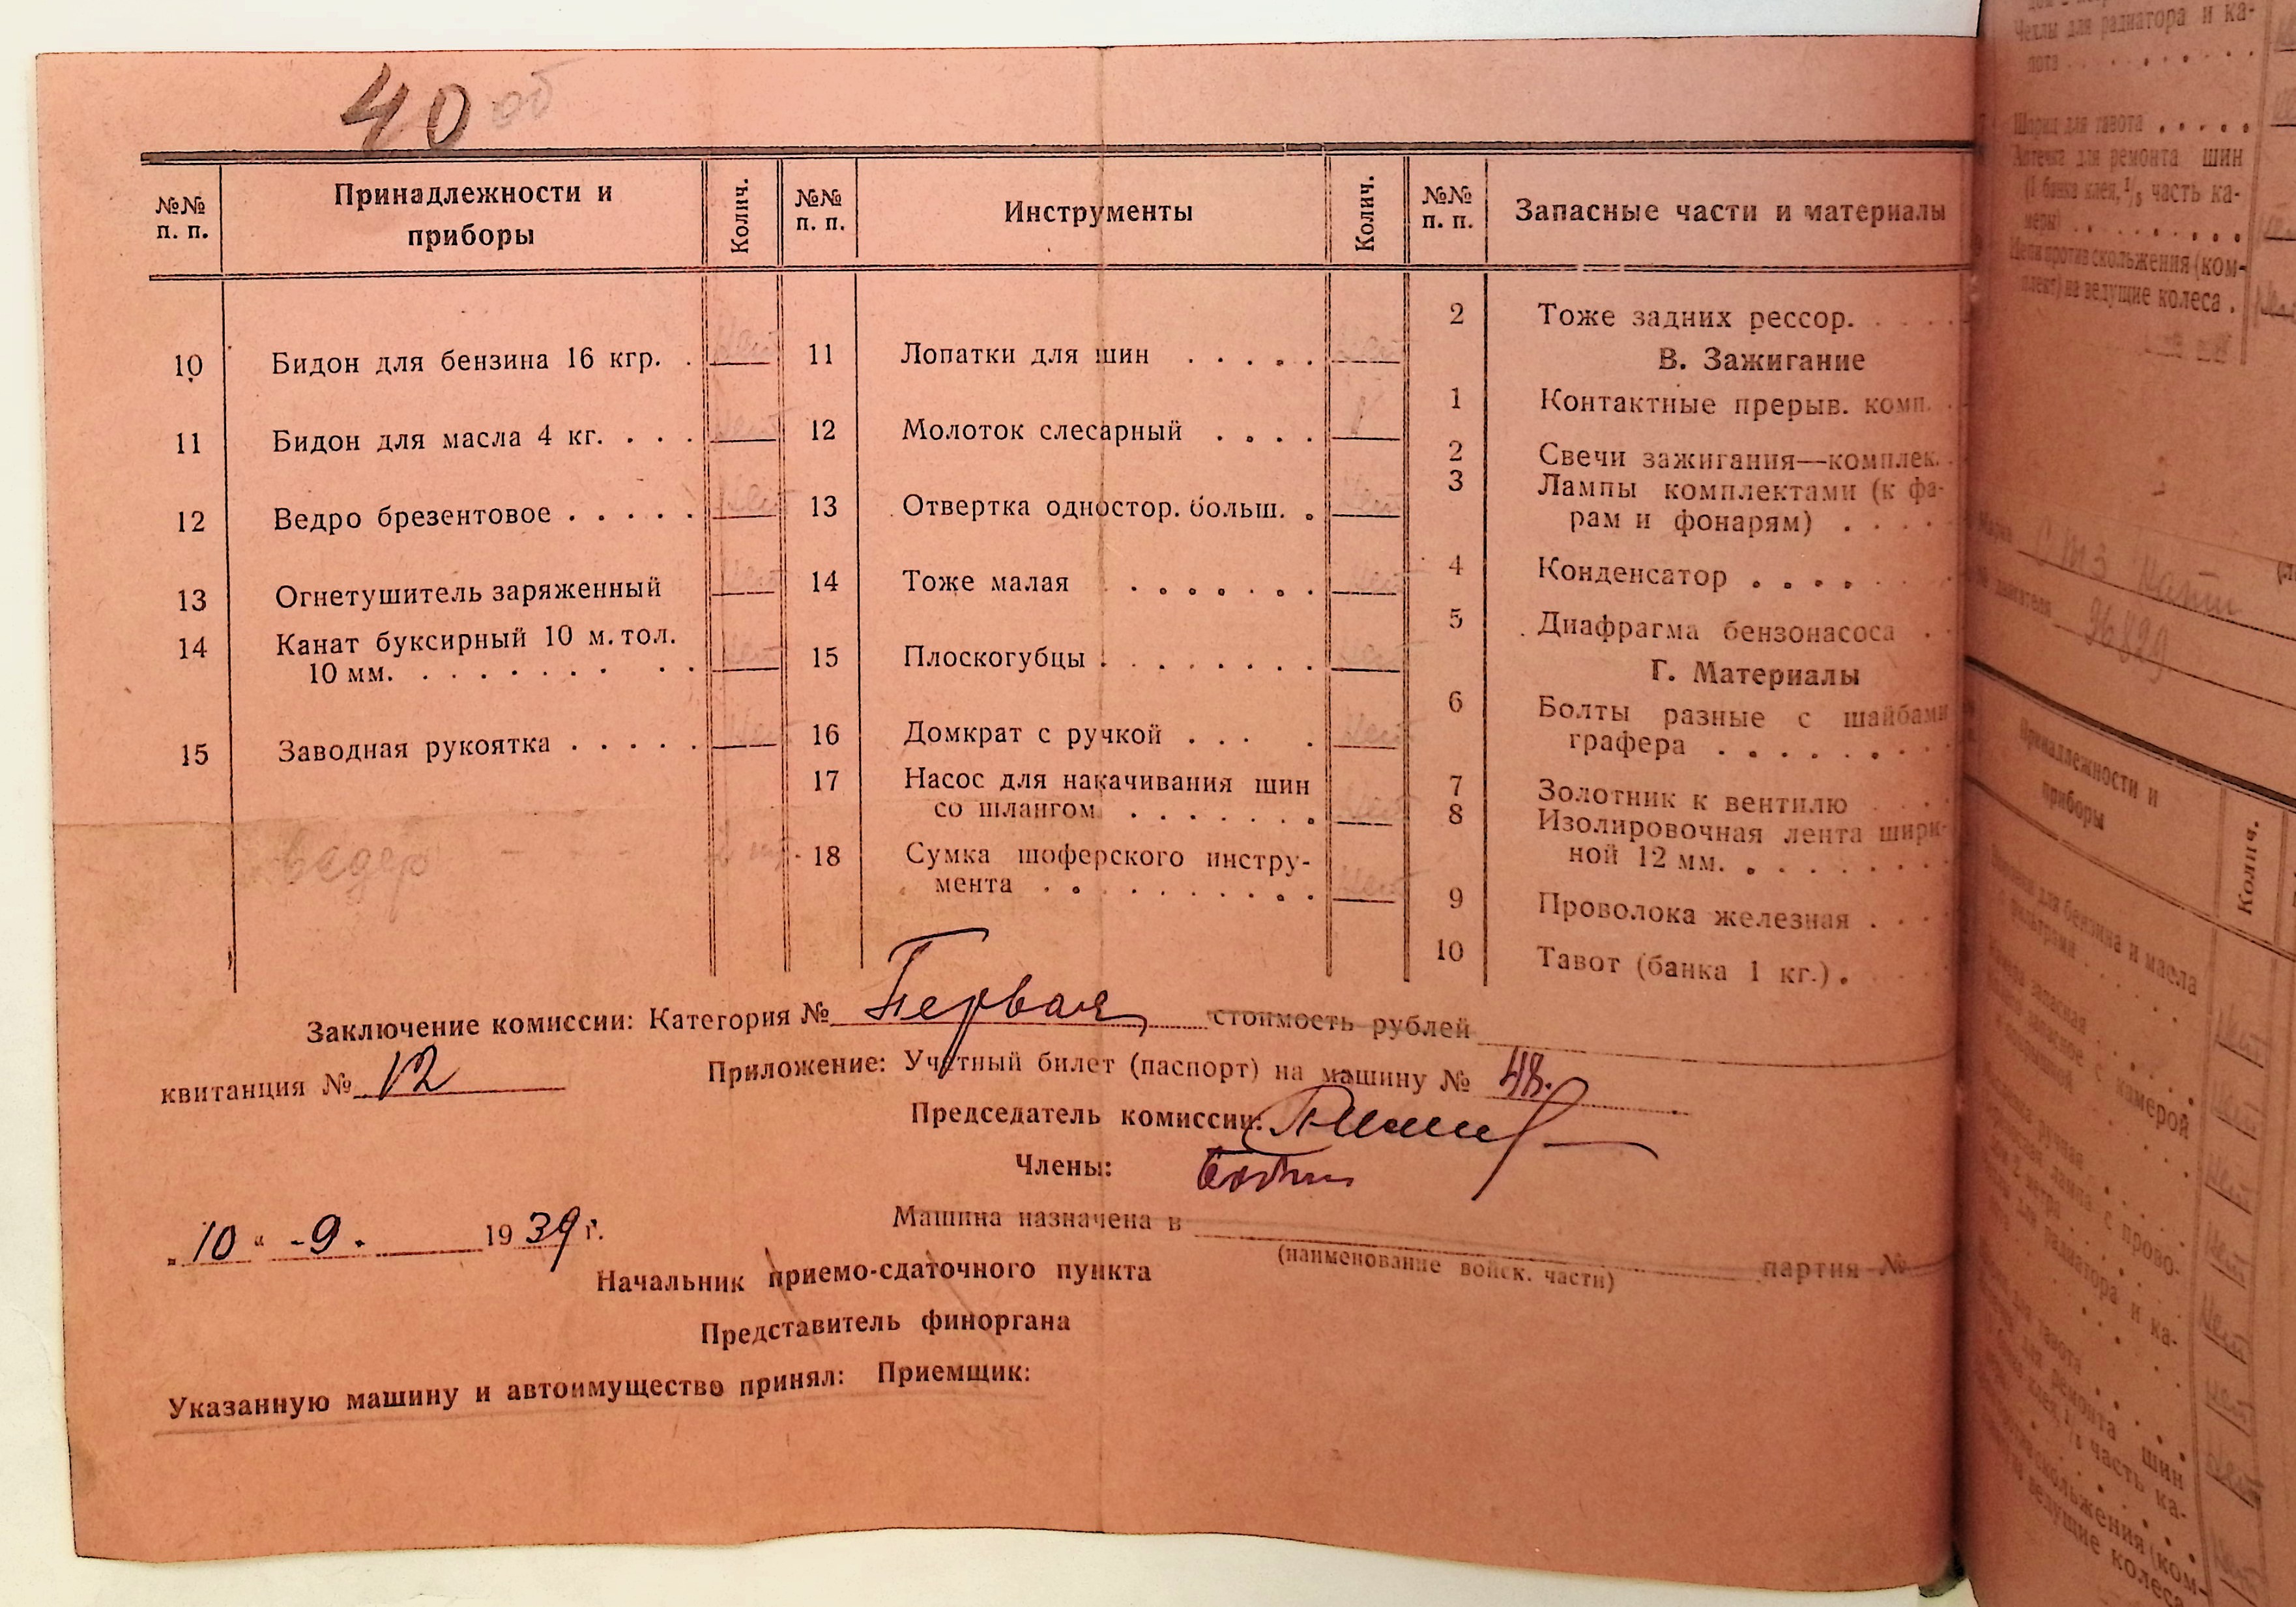 40 об
№№ п. п.
Принадлежности и приборы
Колич.
№№ п. п.
Инструменты
Колич.
№№ п. п.
Запасные части и материалы
10 Бидон для бензина 16 кгр. . Нет
11 Бидон для масла 4 кг. . . . Нет
12 Ведро брезентовое . . . . . Нет
13 Огнетушитель заряженный Нет
14 Канат буксирный 10 м. тол.
10 мм. . . . . . . . . . Нет
15 Заводная рукоятка . . . . . Нет
ведер
11 Лопатки для шин . . . . . Нет
12 Молоток слесарный . . . . 1
13 Отвертка одностор. больш. . Нет
14 Тоже малая . . . . . . . Нет
15 Плоскогубцы . . . . . . . . Нет
16 Домкрат с ручкой . . . . Нет
17 Насос для накачивания шин
со шлангом . . . . . . . Нет
18 Сумка шоферского инстру-
мента . . . . . . . . . Нет
2 Тоже задних рессор. . . .
В. Зажигание
1 Контактные прерыв. комп. .
2 Свечи зажигания—комплек. .
3 Лампы комплектами (к фа-
рам и фонарям) . . . .
4 Конденсатор . . . . . .
5 Диафрагма бензонасоса . .
Г. Материалы
6 Болты разные с шайбами
графера . . . . . . . .
7 Золотник к вентилю . . .
8 Изолировочная лента шири-
ной 12 мм. . . . . . . .
9 Проволока железная . . .
10 Тавот (банка 1 кг.) .
Заключение комиссии: Категория № Первая стоимость рублей
квитанция № 12 Приложение: Учетный билет (паспорт) на машину № 48.
Председатель комиссии:
Члены:
„10“ -9. 1939 г.
Машина назначена в
(наименование войск. части) партия №
Начальник приемо-сдаточного пункта
Представитель финоргана
Указанную машину и автоимущество принял: Приемщик:
Чехлы для радиатора и ка-
пота . . . . . . . . .
Шприц для тавота . . . . .
Аптечка для ремонта шин
(1 банка клея, 1/5 часть ка-
меры) . . . . . . . . .
Цепи против скольжения (ком-
плект) на ведущие колеса .
Марка СТЗ Нати
двигателя 96829
Принадлежности и
приборы
Колич.
для бензина и масла
фильтрами
запасная
запасное с камерой
и покрышкой
ручная
лампа с прово-
дом 2 метра
для радиатора и ка-
для тавота
для ремонта шин
клея, 1/5 часть ка-
скольжения (ком-
ведущие колеса